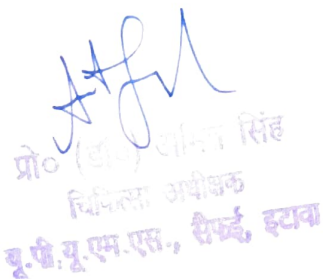 प्रो० (डा०) सिंह
चिकित्सा अधीक्षक
यू.पी.यू.एम.एस., सैफई, इटावा